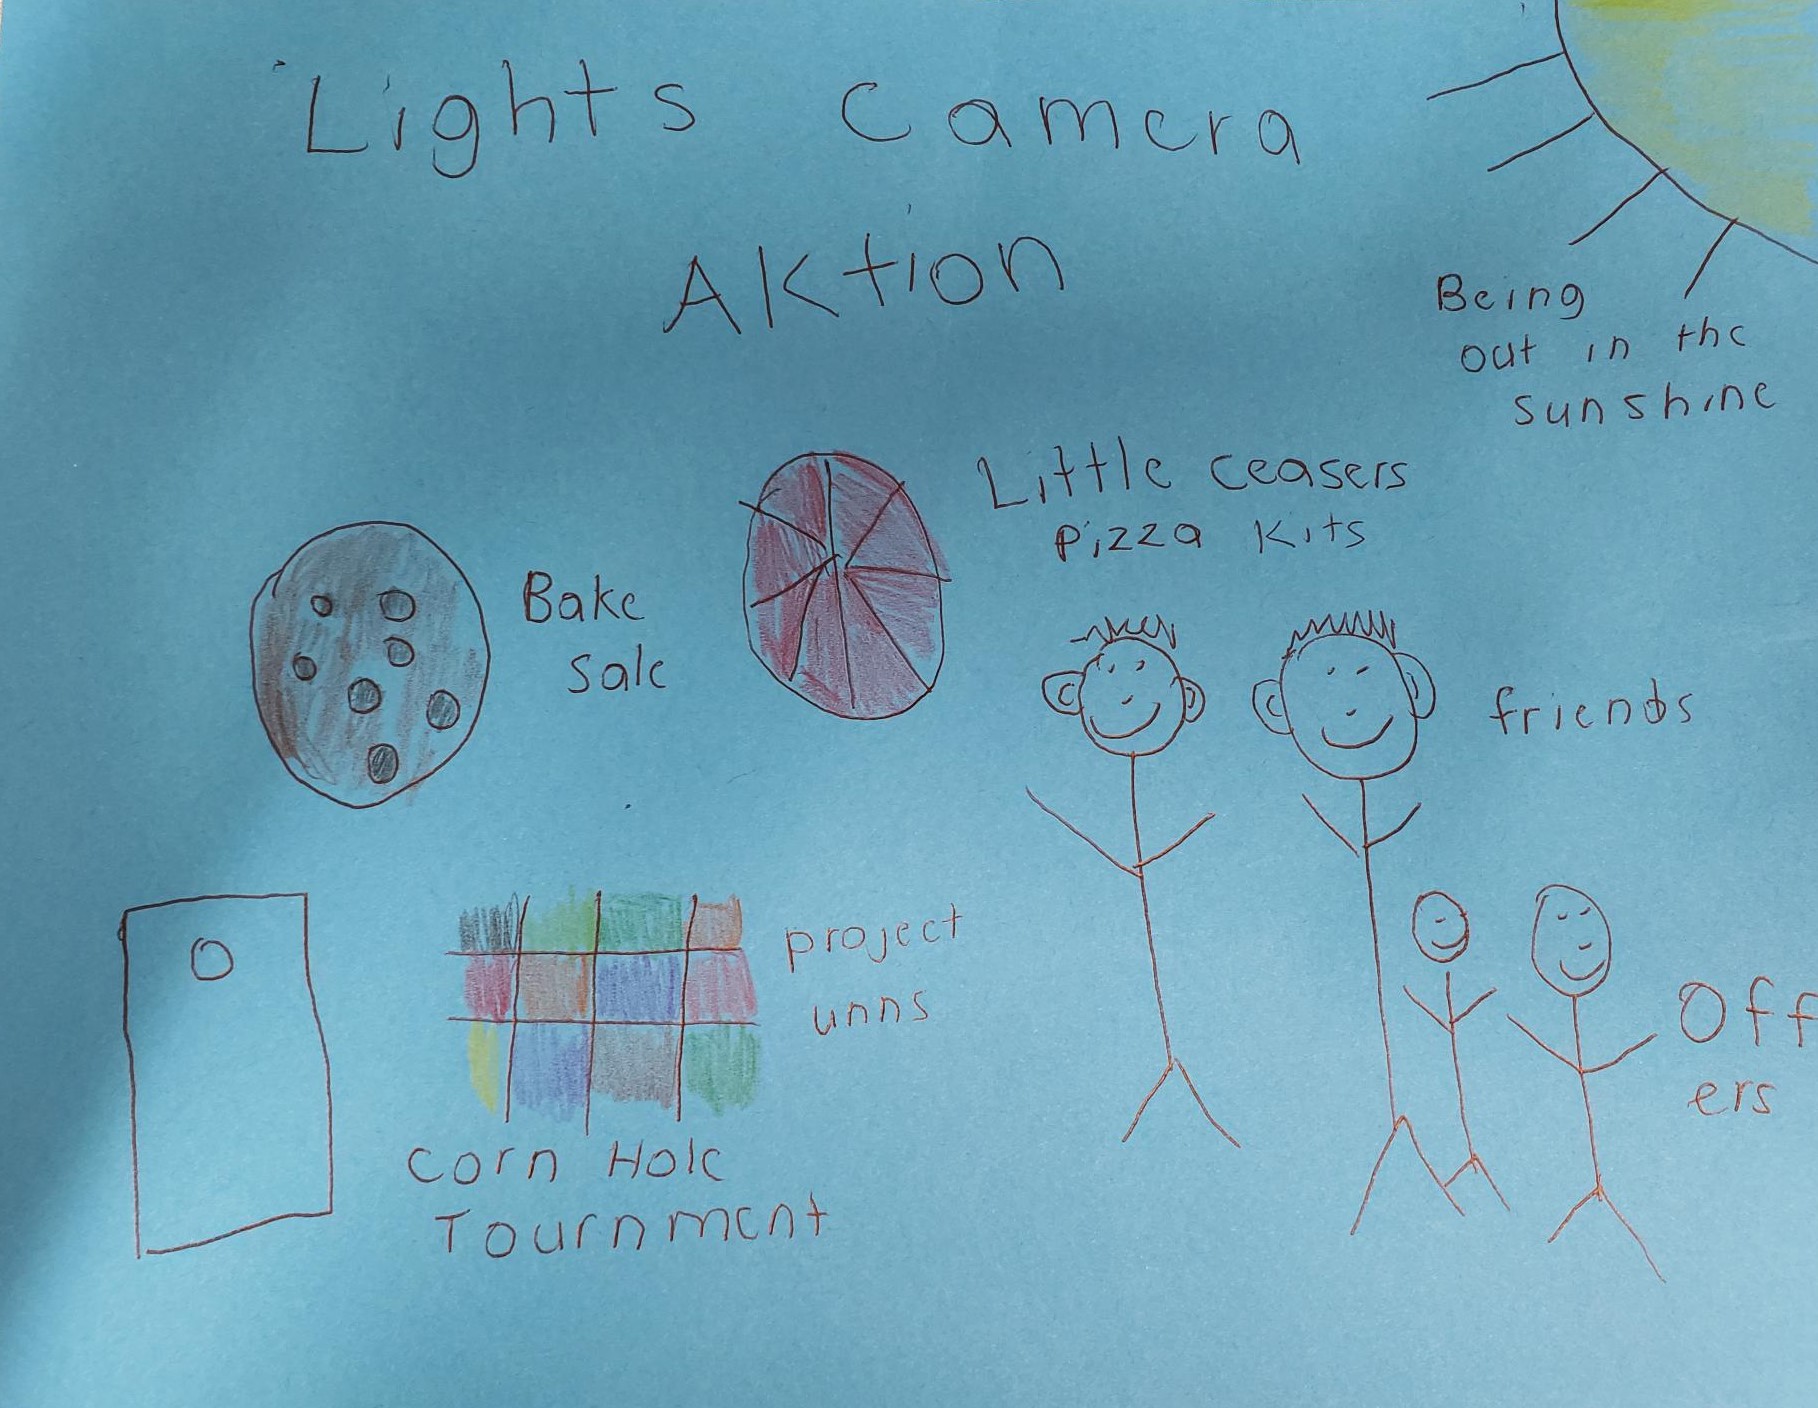 Lights Camera
AKtion
Being
out in the
sunshine
Little ceasers
Pizza Kits
Bake
sale
friends
project
unns
Off
ers
Corn Hole
Tournment